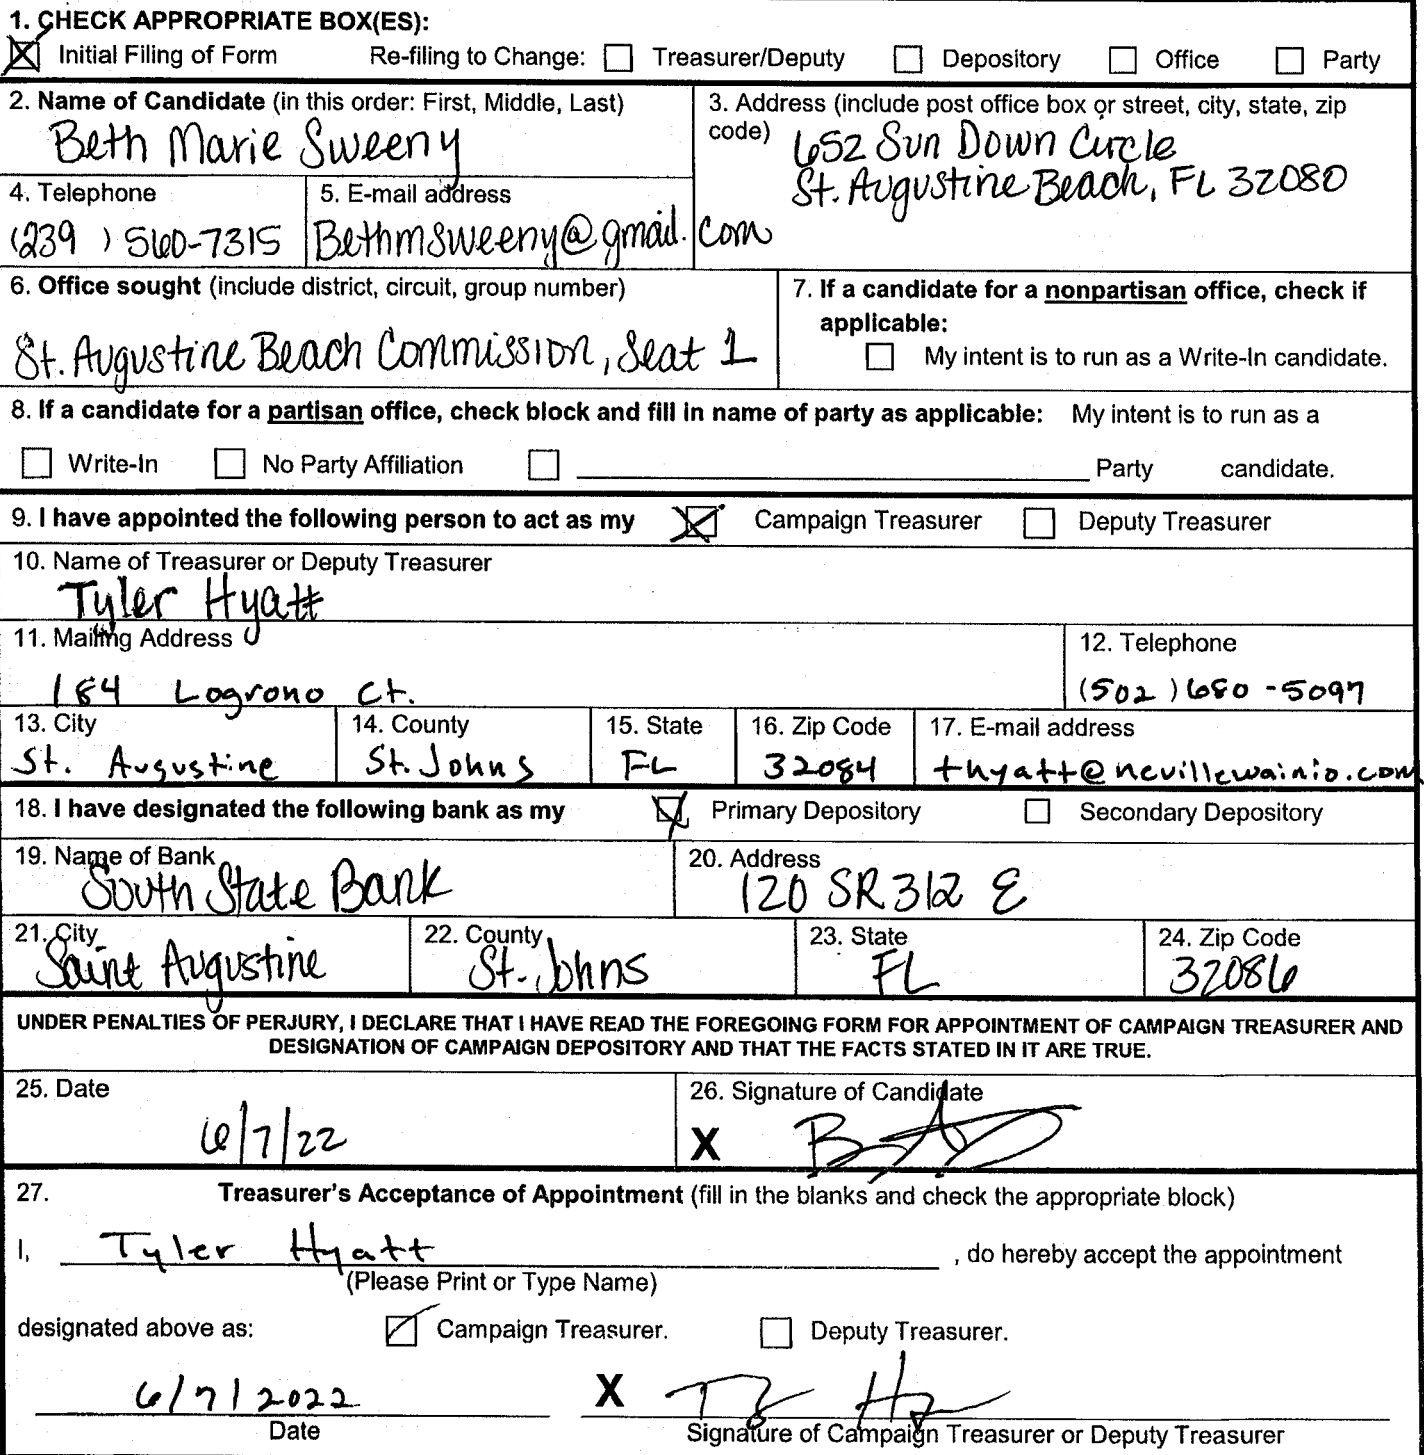 1. CHECK APPROPRIATE BOX(ES):
Initial Filing of Form Re-filing to Change: Treasurer/Deputy Depository Office Party
2. Name of Candidate (in this order: First, Middle, Last)
Beth Marie Sweeny
3. Address (include post office box or street, city, state, zip
code) 652 Sun Down Circle
St. Augustine Beach, FL 32080
4. Telephone
(239 ) 560-7315
5. E-mail address
Bethmsweeny@gmail.com
6. Office sought (include district, circuit, group number)
St. Augustine Beach Commission, Seat 1
7. If a candidate for a nonpartisan office, check if
applicable:
My intent is to run as a Write-In candidate.
8. If a candidate for a partisan office, check block and fill in name of party as applicable: My intent is to run as a
Write-In No Party Affiliation Party candidate.
9. I have appointed the following person to act as my Campaign Treasurer Deputy Treasurer
10. Name of Treasurer or Deputy Treasurer
Tyler Hyatt
11. Mailing Address
184 Logrono Ct.
12. Telephone
(502 ) 680-5097
13. City
St. Augustine
14. County
St. Johns
15. State
FL
16. Zip Code
32084
17. E-mail address
thyatt@nevillewainio.com
18. I have designated the following bank as my Primary Depository Secondary Depository
19. Name of Bank
South State Bank
20. Address
120 SR 312 E
21. City
Saint Augustine
22. County
St. Johns
23. State
FL
24. Zip Code
32086
UNDER PENALTIES OF PERJURY, I DECLARE THAT I HAVE READ THE FOREGOING FORM FOR APPOINTMENT OF CAMPAIGN TREASURER AND
DESIGNATION OF CAMPAIGN DEPOSITORY AND THAT THE FACTS STATED IN IT ARE TRUE.
25. Date
6/7/22
26. Signature of Candidate
X
27. Treasurer's Acceptance of Appointment (fill in the blanks and check the appropriate block)
I, Tyler Hyatt , do hereby accept the appointment
(Please Print or Type Name)
designated above as: Campaign Treasurer. Deputy Treasurer.
6/7/2022 X
Date Signature of Campaign Treasurer or Deputy Treasurer